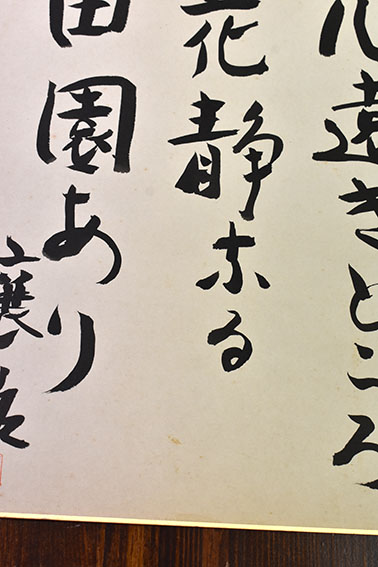 心遠きところ
花静なる
田園あり